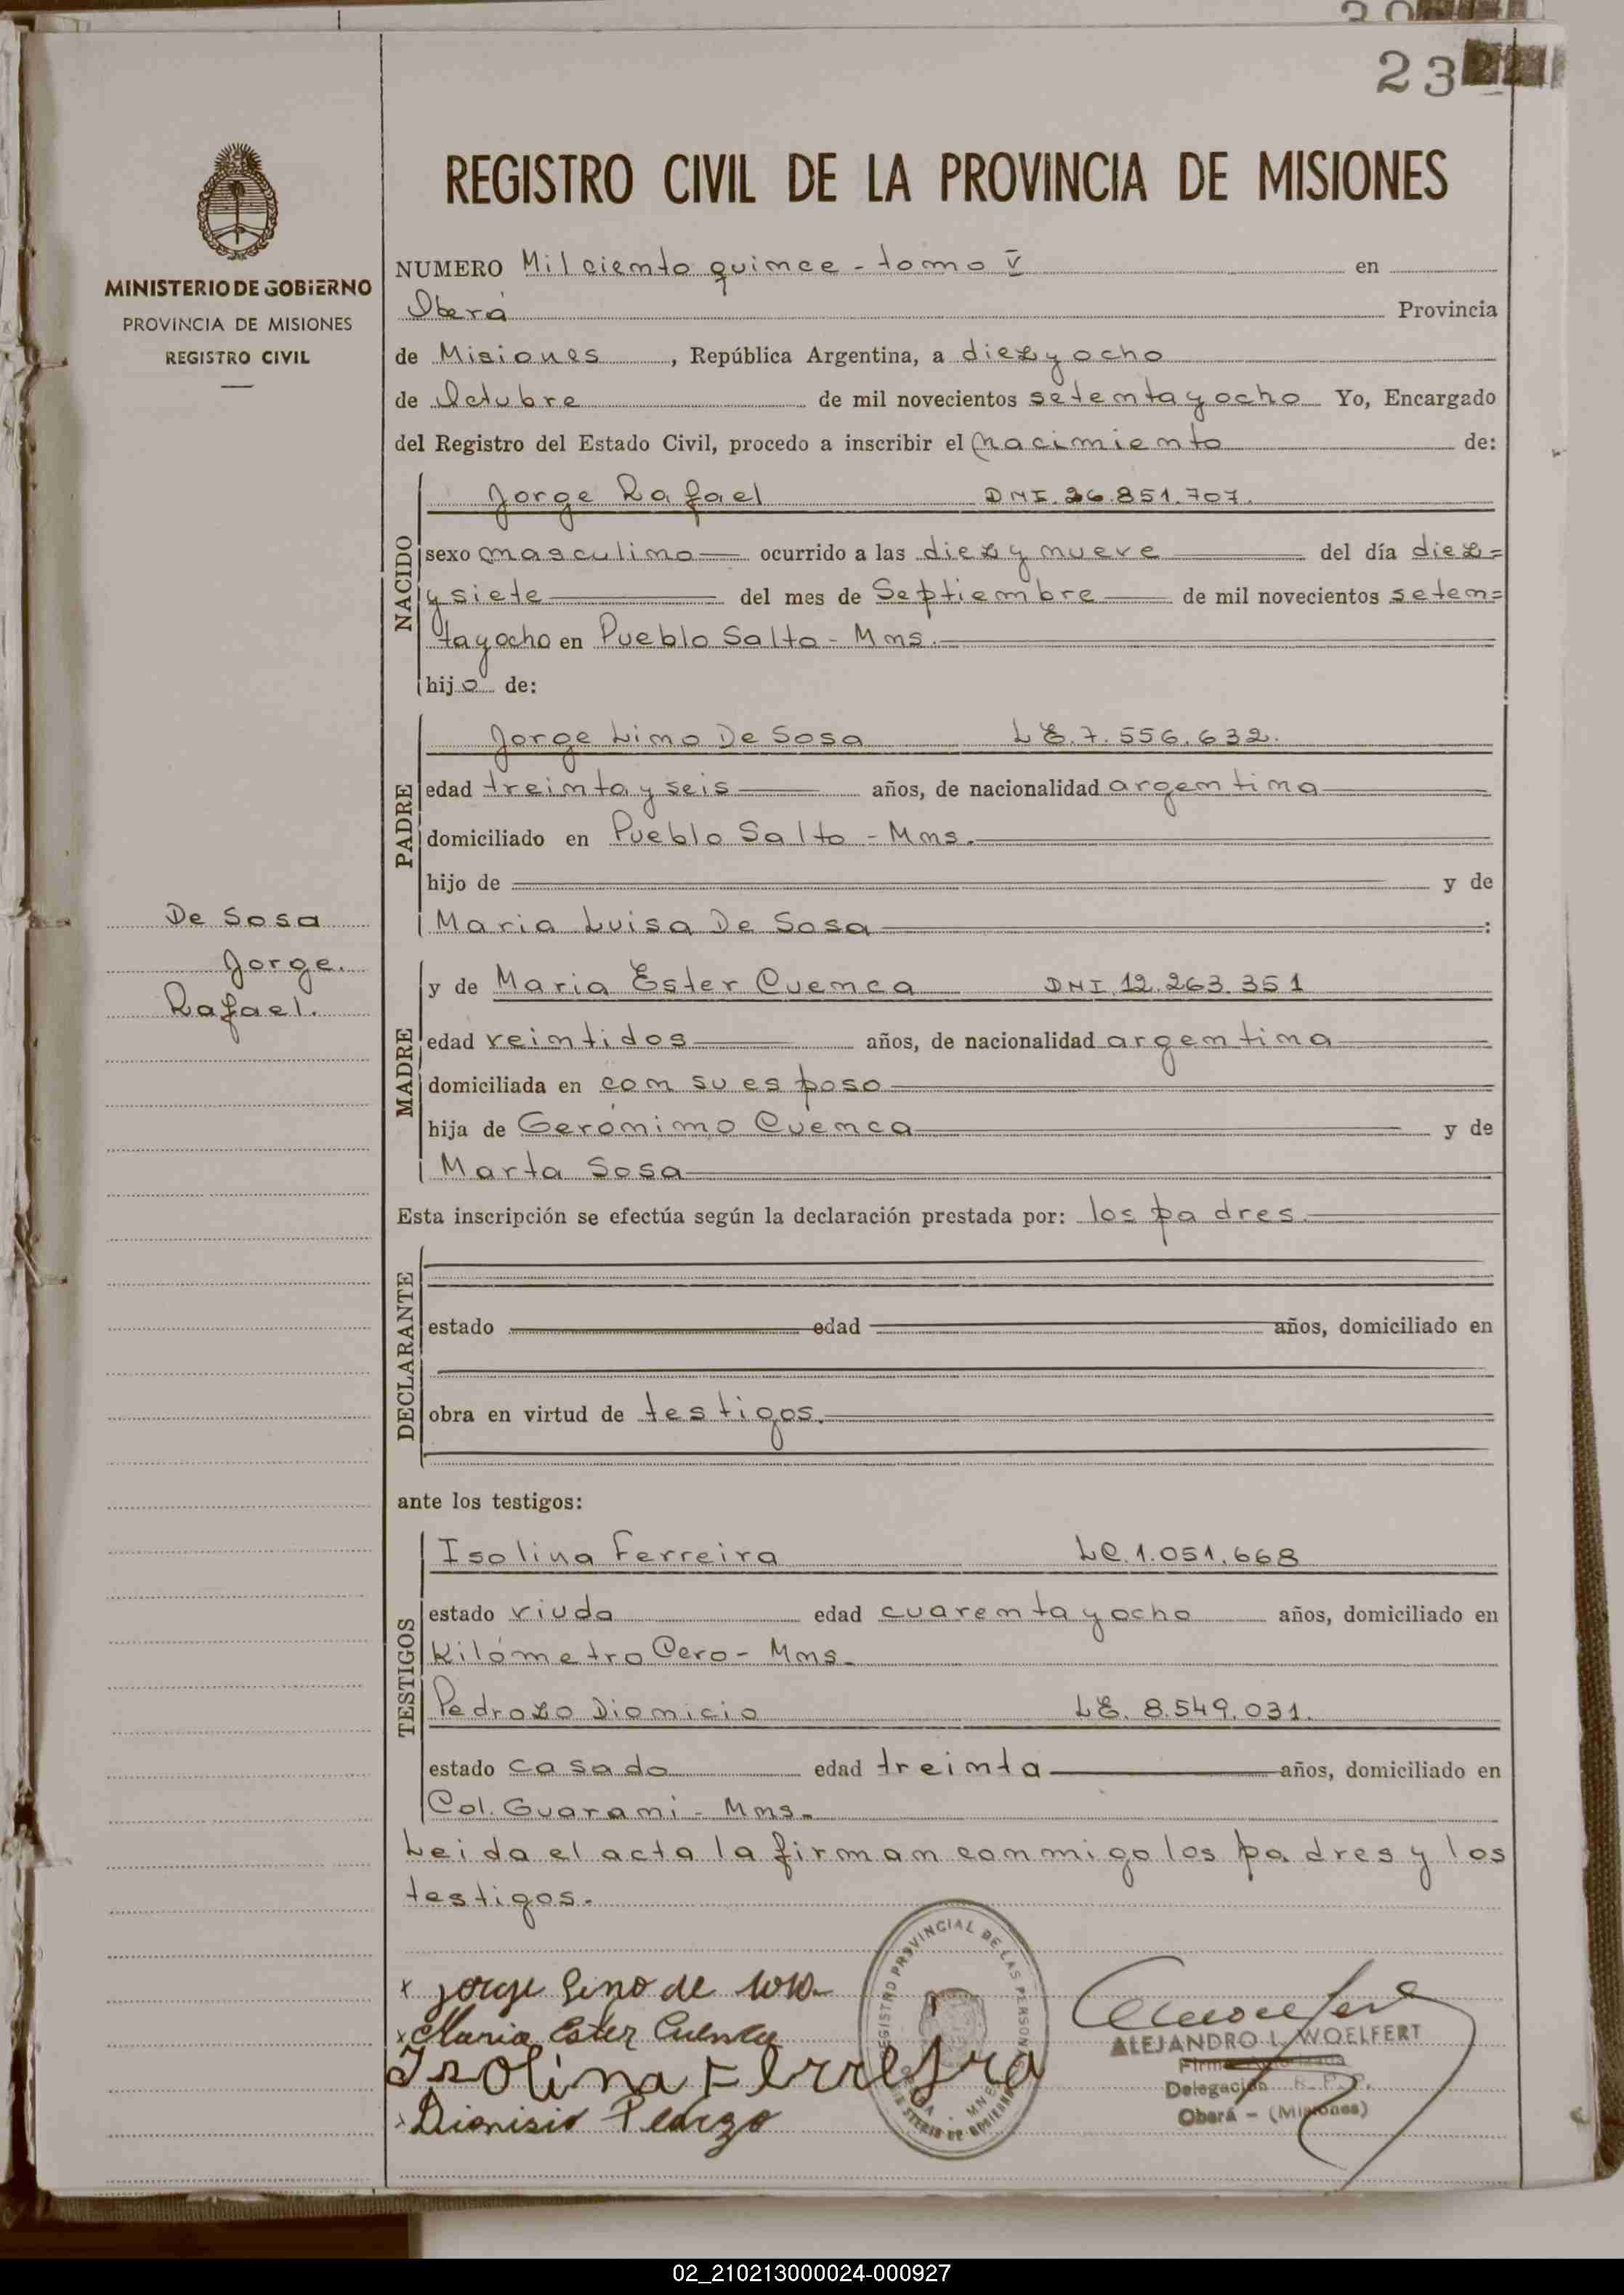 23
REGISTRO CIVIL DE LA PROVINCIA DE MISIONES
MINISTERIO DE GOBIERNO
PROVINCIA DE MISIONES
REGISTRO CIVIL
NUMERO Mil ciento quince - tomo V en
Oberá Provincia
de Misiones, República Argentina, a diez y ocho
de Octubre de mil novecientos setenta y ocho Yo, Encargado
del Registro del Estado Civil, procedo a inscribir el nacimiento de:
NACIDO
Jorge Rafael DNI. 26.851.707.
sexo masculino ocurrido a las diez y nueve del día diez=
y siete del mes de Septiembre de mil novecientos seten=
ta y ocho en Pueblo Salto - Mns.
hijo de:
PADRE
Jorge Lino De Sosa L.E. 7.556.632.
edad treinta y seis años, de nacionalidad argentina
domiciliado en Pueblo Salto - Mns.
hijo de y de
Maria Luisa De Sosa :
De Sosa
Jorge.
Rafael.
MADRE
y de Maria Ester Cuenca DNI. 12.263.351
edad veintidos años, de nacionalidad argentina
domiciliada en con su esposo
hija de Gerónimo Cuenca y de
Marta Sosa
Esta inscripción se efectúa según la declaración prestada por: los padres
DECLARANTE
estado edad años, domiciliado en
obra en virtud de testigos.
ante los testigos:
TESTIGOS
Isolina Ferreira LC. 1.051.668
estado viuda edad cuarenta y ocho años, domiciliado en
Kilómetro Cero - Mns.
Pedrozo Dionicio L.E. 8.549.031.
estado casado edad treinta años, domiciliado en
Col. Guarani - Mns.
Leida el acta la firman conmigo los padres y los
testigos.
x Jorge Lino de sosa
x Maria Ester Cuenca
Isolina Ferreira
Dionisio
REGISTRO PROVINCIAL DE LAS PERSONAS
ALEJANDRO L. WOELFERT
Delegación R. P. P.
Oberá - (Misiones)
02_210213000024-000927